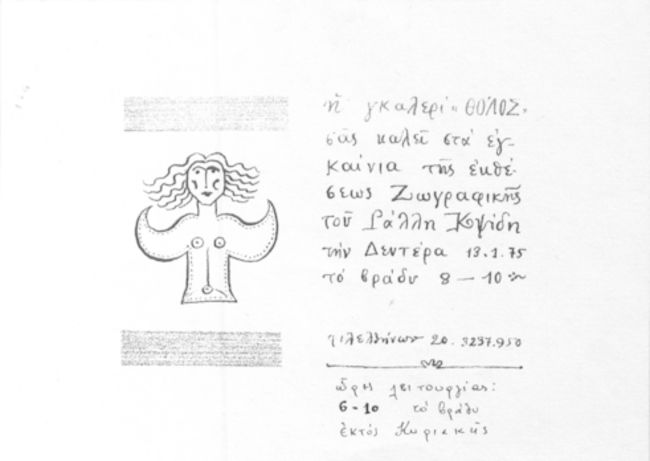 ἡ γκαλερί «ΘΟΛΟΣ»
σᾶς καλεῖ στά ἐγ-
καίνια τῆς ἐκθέ-
σεως Ζωγραφικῆς
τοῦ Ράλλη Κοψίδη
τήν Δευτέρα 13.1.75
τό βράδυ 8 — 10
Φιλελλήνων 20. 3237.950
ὧρες λειτουργίας:
6 - 10 τό βράδυ
ἐκτός Κυριακῆς